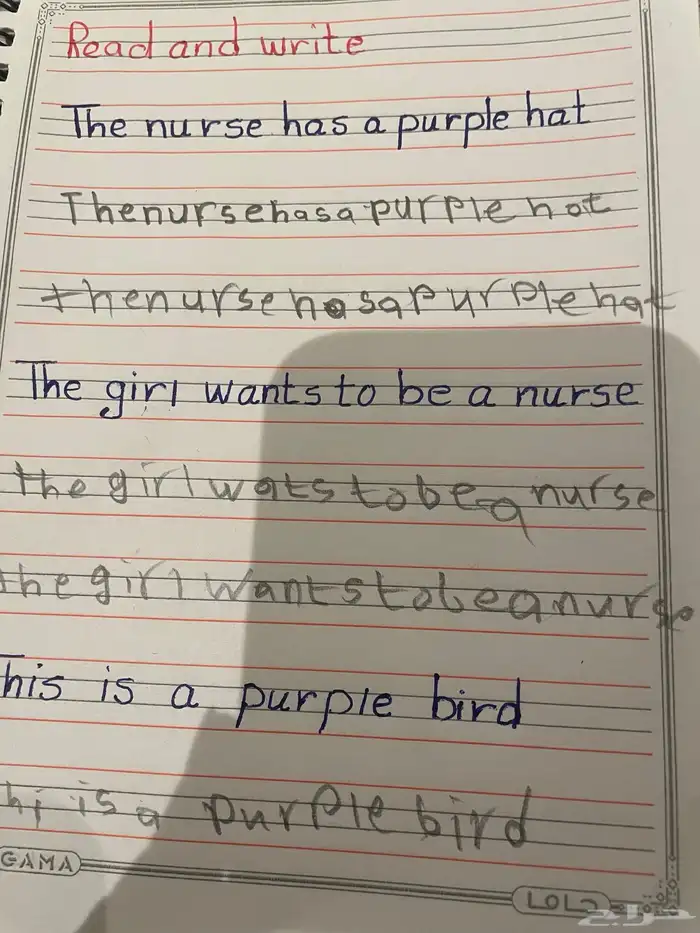 Read and write
The nurse has a purple hat
Thenursehasa purple hat
thenursehasapurplehat
The girl wants to be a nurse
the girl wats tobea nurse
the girl wantstobeanurse
This is a purple bird
hi is a purple bird
GAMA
LOLO
حراج